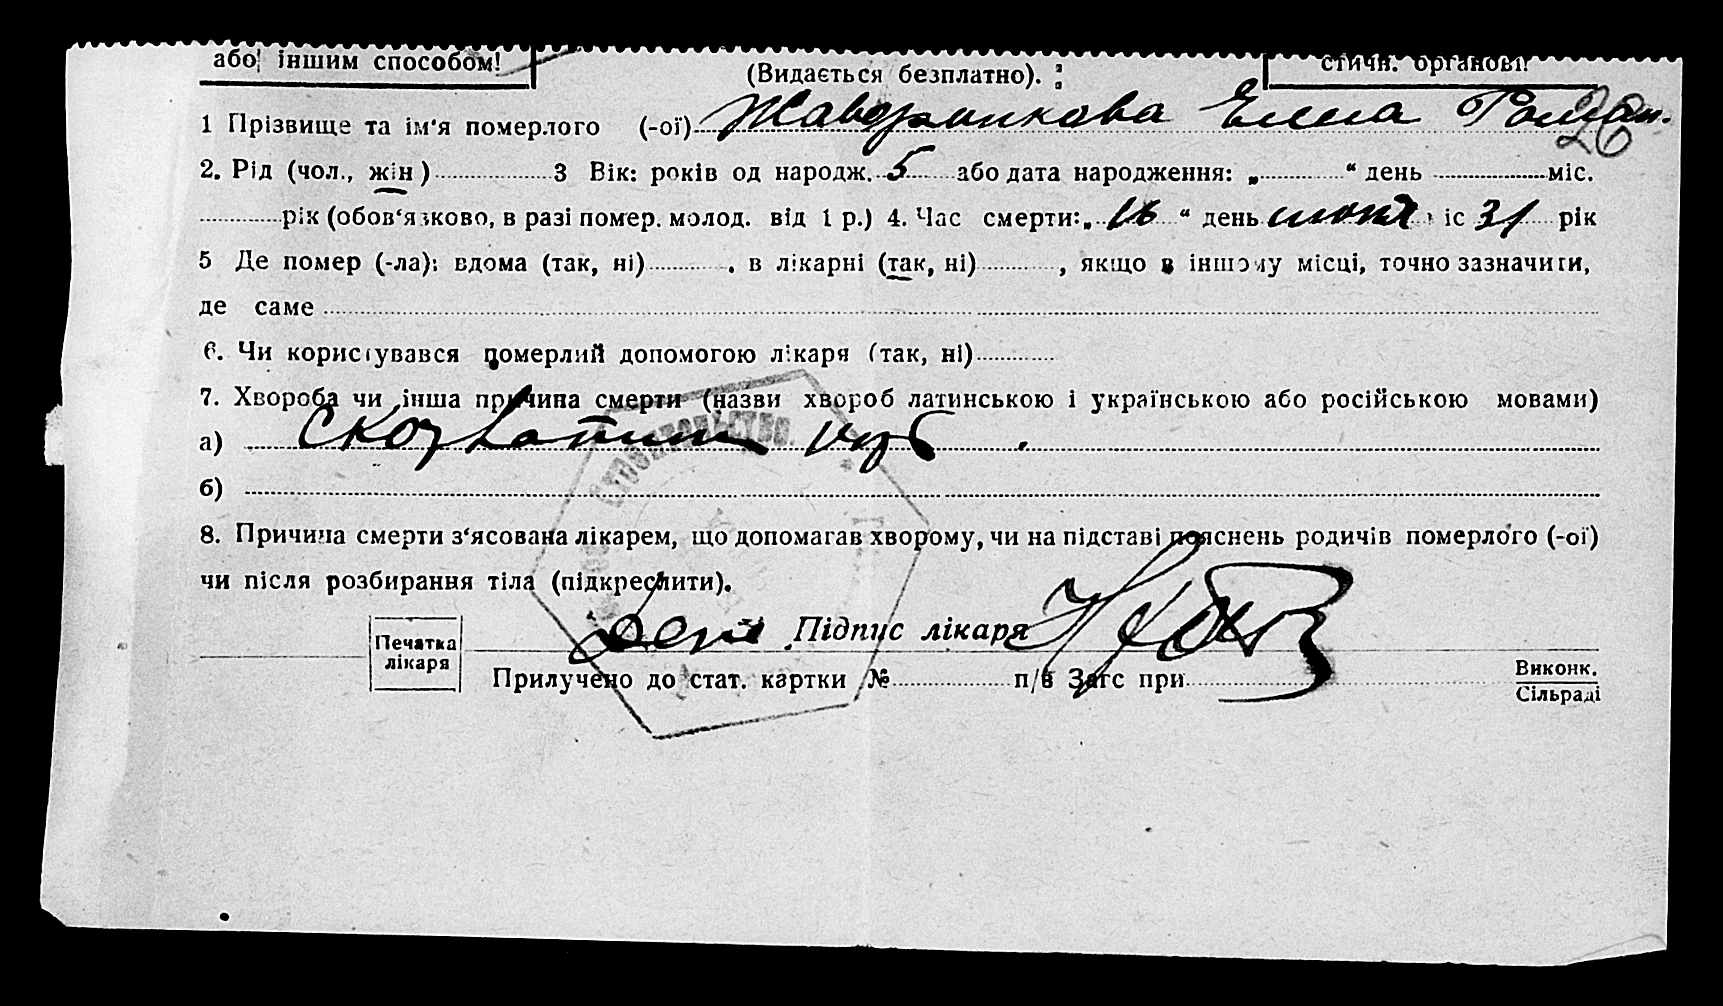 або іншим способом!
(Видається безплатно).
стичн. органові!
26
1 Прізвище та ім'я померлого (-ої) Жаворонкова Елена Роман.
2. Рід (чол., жін) 3 Вік: років од народж. 5 або дата народження: „ “ день міс.
рік (обов'язково, в разі помер. молод. від 1 р.) 4. Час смерти: „ 16 “ день июня іс 31 рік
5 Де помер (-ла): вдома (так, ні) , в лікарні (так, ні) , якщо в іншому місці, точно зазначити,
де саме
6. Чи користувався померлий допомогою лікаря (так, ні)
7. Хвороба чи інша причина смерти (назви хвороб латинською і українською або російською мовами)
а)
б)
8. Причина смерти з'ясована лікарем, що допомагав хворому, чи на підставі пояснень родичів померлого (-ої)
чи після розбирання тіла (підкреслити).
Печатка
лікаря
Підпис лікаря
Прилучено до стат. картки № п/в Загс при
Виконк.
Сільраді